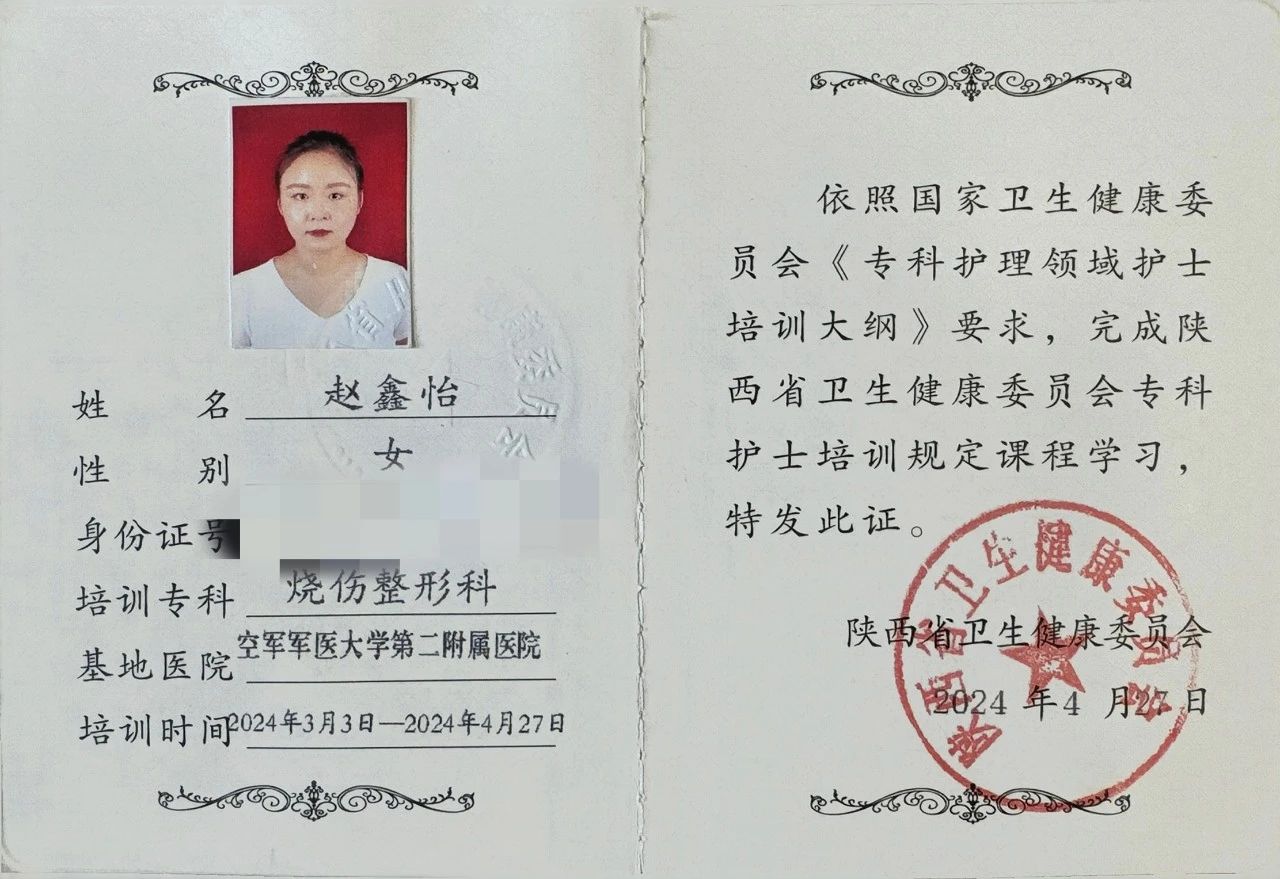 姓名 赵鑫怡
性别 女
身份证号
培训专科 烧伤整形科
基地医院 空军军医大学第二附属医院
培训时间 2024年3月3日—2024年4月27日
依照国家卫生健康委
员会《专科护理领域护士
培训大纲》要求，完成陕
西省卫生健康委员会专科
护士培训规定课程学习，
特发此证。
陕西省卫生健康委员会
2024 年4 月27 日
陕西省卫生健康委员会